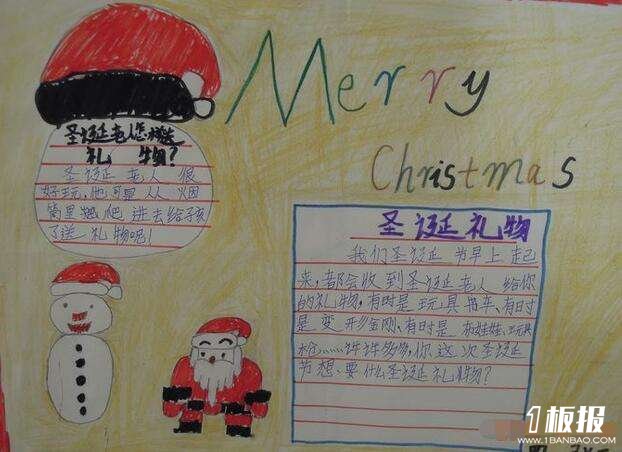 Merry
Christmas
圣诞老人怎样送
礼物?
圣诞老人很
好玩,他可是从烟
筒里爬进去给孩
子送礼物呢!
圣诞礼物
我们圣诞节早上起
来,都会收到圣诞老人给你
的礼物,有时是玩具书车、有时
是变形金刚、有时是布娃娃、玩具
枪……许许多多,你这次圣诞
节想要什么圣诞礼物?
1板报
WWW.1BANBAO.COM